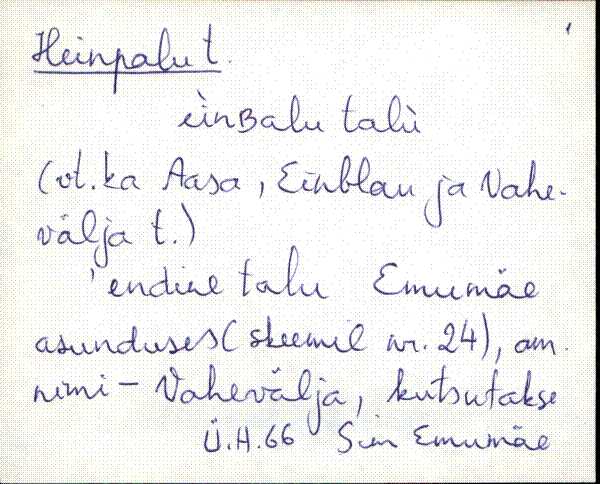 Heinpalu t.
èinBalu talù
(vt. ka Aasa, Einblau ja Vahe-
välja t.)
'endine talu Emumäe
asunduses (skeemil nr. 24), am.
nimi - Vahevälja, kutsutakse
Ü.H.66 Sim Emumäe